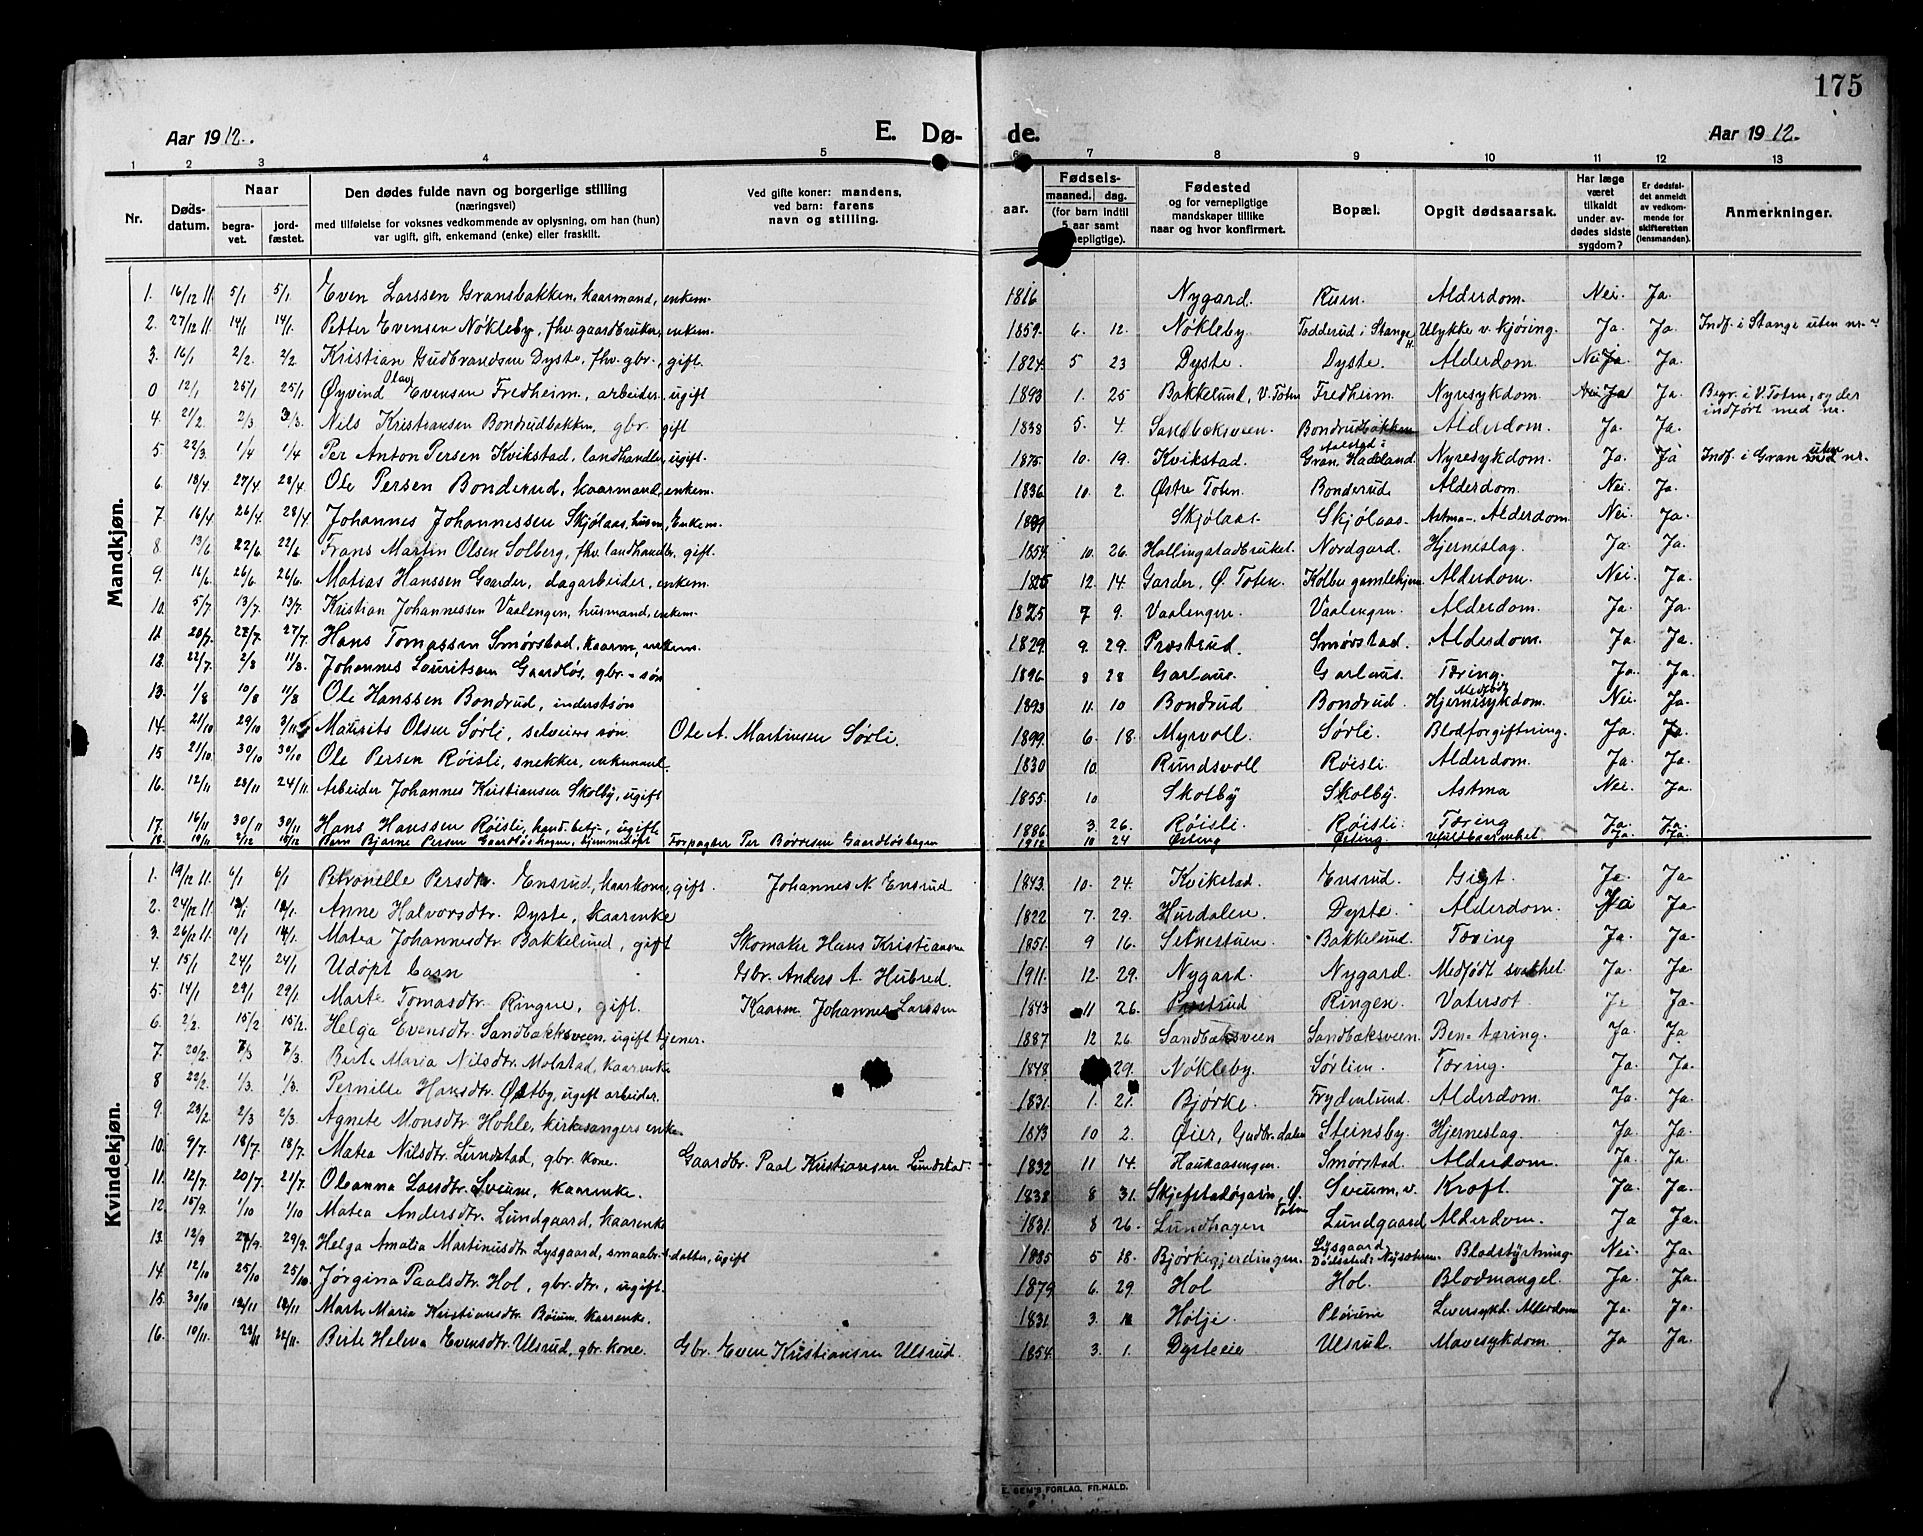 175
Aar 1912. E. Dø- de. Aar 1912.
1 2 3 4 5 6 7 8 9 10 11 12 13
Nr. Døds-datum. Naar begra-vet. jord-fæstet. Den dødes fulde navn og borgerlige stilling (næringsvei) med tilføielse for voksnes vedkommende av oplysning, om han (hun) var ugift, gift, enkemand (enke) eller fraskilt. Ved gifte koner: mandens, ved barn: farens navn og stilling. aar. Fødsels- maaned. dag. (for barn indtil 5 aar samt nepligtige). Fødested og for vernepligtige mandskaper tillike naar og hvor konfirmert. Bopæl. Opgit dødsaarsak. Har læge været tilkaldt under av-dødes sidste sygdom? Er dødsfal-det anmeldt av vedkom-mende for skifteretten (lensmanden). Anmerkninger.
Mandkjøn.
1. 16/12 11. 5/1 5/1 Even Larssen Gransbakken, kaarmand, enkem. 1816 Nygard. Ruen. Alderdom. Nei. Ja.
2. 27/12 11. 14/1 14/1. Petter Evensen Nökleby, fhv. gaardbruker, enkem. 1859. 6. 12. Nökleby. Todderud i Stange H. Ulykke v. kjöring. Ja. Ja. Indf. i Stange uten nr.
3. 16/1 2/2. 2/2 Kristian Gudbrandsen Dyste, fhv. gbr., gift. 1824. 5 23 Dyste. Dyste. Alderdom. Nei Ja Ja.
0 12/1 25/1 25/1 Øyvind Olav Evensen Fredheim, arbeider, ugift 1893 1. 25 Bakkelund, V. Toten Fredheim. Nyresykdom. Nei Ja Ja. Begr. i V. Toten, og der indfört med nr.
4. 21/2. 2/3 3/3. Nils Kristiansen Bondrudbakken, gbr. gift 1838 5. 4. Sandbæksveen. Bondrudbakken Alderdom. Ja. Ja.
5. 22/3. 1/4 1/4 Per Anton Persen Kvikstad, landhandler, ugift. 1875. 10. 19. Kvikstad. Gran, Hadeland. Nyresykdom. Ja. Ja Indf. i Gran uten nr.
6. 18/4. 27/4 28/4. Ole Persen Bonderud, kaarmand, enkem. 1836. 10. 2. Østre Toten. Bonderud Alderdom. Nei. Ja.
7. 16/4 26/4. 28/4 Johannes Johannessen Skjölaas, husm, Enkem. Skjölaas. Skjölaas. Astma-. Alderdom. Nei. Ja.
8. 13/6 22/6. 22/6 Frans Martin Olsen Solberg, fhv. landhandlr, gift. 1854. 10. 26. Hallingstadbruket. Nordgard. Hjerneslag. Ja. Ja.
9. 16/6. 26/6. 26/6. Matias Hanssen Gaarder, dagarbeider, enkem. 1825 12. 14. Garder, Ø. Toten. Kolbu gamlehjem Alderdom. Nei. Ja.
10. 5/7 13/7. 13/7. Kristian Johannessen Vaalengen, husmand, enkem. 1825 7 9. Vaalengere. Vaalengen. Alderdom. Ja. Ja.
11. 20/7. 22/7. 27/7. Hans Tomassen Smörstad, kaarm, enkem. 1829. 9. 29. Præstrud. Smörstad. Alderdom. Ja. Ja.
12. 22/7. 2/8 11/8. Johannes Lauritsen Gaardlös, gbr. sön 1896. 8 28 Garlaus. Garlaus. Tæring. Ja. Ja.
13. 1/8 10/8 11/8 Ole Hanssen Bondrud, inderstsön 1893 11. 10 Bondrud Bondrud. Medfödt Hjernesykdom. Nei. Ja.
14. 21/10 29/10 3/11 Maurits Olsen Sörli, selveiers sön. Ole A. Martinsen Sörli. 1899. 6. 18. Myrvoll. Sörli. Blodforgiftning. Ja. Ja.
15 21/10. 30/10 30/10 Ole Persen Röisli, snekker, enkemand. 1830 10. Rundsvoll Röisli. Alderdom. Ja. Ja.
16. 12/11 23/11 24/11. Arbeider Johannes Kristiansen Skolby, ugift 1855. 10 Skolby Skolby. Astma Nei. Ja.
17. 16/11 30/11 30/11 Hans Hanssen Röisli, hand.betj., ugift. 1886 3. 26. Röisli. Röisli. Tæring Ja. Ja.
18. 19/11 2/12 15/12 Barn Bjarne Persen Gaardlöshagen, hjemmedöpt Forpagter Per Börresen Gaardlöshagen 1912 10 24 Østeng Østeng. Ufuldbaarenhet. Ja. Ja.
Kvindekjøn.
1. 19/12 11. 6/1 6/1 Petronelle Persdtr. Ensrud, kaarkone, gift. Johannes N. Ensrud 1843. 10. 24. Kvikstad. Ensrud. Gigt. Ja. Ja.
2. 24/12 11. 13/1 13/1. Anne Halvorsdtr. Dyste, kaarenke 1822. 7. 29. Hurdalen. Dyste. Alderdom. Ja Ja.
3. 26/12 11. 10/1 14/1. Matea Johannesdtr. Bakkelund, gift Skomaker Hans Kristiansen 1851. 9 16. Setnestuen. Bakkelund. Tæring Ja. Ja.
4. 15/1 24/1 24/1. Udöpt barn Gbr. Anders A. Hubred. 1911. 12. 29. Nygard. Nygard. Medfödt svakhet. Ja. Ja.
5. 14/1 29/1 29/1. Marte Tomasdtr. Ringen, gift. Kaarm. Johannes Larssen 1843 11 26. Præstrud Ringen. Vatersot. Ja Ja.
6. 2/2. 15/2 15/2. Helga Evensdtr. Sandbakksveen, ugift tjener. 1887 12 26. Sandbæksveen Sandbæksveen. Ben-tæring. Ja. Ja.
7. 20/2. 7/3 7/3. Berte Maria Nilsdtr. Molstad, kaarenke 1848. 29. Nökleby. Sörlien. Tæring. Ja. Ja.
8 22/2. 1/3. 1/3. Pernille Hansdtr. Østby, ugift arbeider. 1831. 1. 21. Björke. Frydenlund. Alderdom. Ja. Ja.
9. 23/2 2/3 2/3. Agnete Monsdtr. Hohle, kirkesangers enke 1843 10 2. Øier, Gudbr.dalen Steinsby. Hjerneslag. Ja. Ja.
10. 9/7 18/7. 18/7. Matea Nilsdtr. Lundstad, gbr. kone. Gaardbr. Paal Kristiansen Lundstad. 1832 11 14. Haukaasengen. Smörstad. Alderdom. Ja. Ja.
11. 12/7 20/7 21/7. Oleanna Larsdtr. Sveum, kaarenke. 1838 8 31. Skjefstadøgarn, Ø. Toten Sveum, v. Kræft. Ja. Ja.
12. 15/9. 1/10 1/10 Matea Andersdtr. Lundgaard, kaarenke 1831. 8 26. Lundhagen Lundgaard Alderdom. Ja Ja.
13. 12/9 29/9. 29/9. Helga Amalia Martinusdtr. Lysgaard, smaabr. datter, ugift 1885 5 18. Björkegjerdingen. Lysgaard Blodstyrtning. Nei. Ja.
14. 12/10 25/10 25/10. Jörgina Paalsdtr. Hol, gbr. dtr., ugift. 1879 6. 29. Hol Hol. Blodmangel. Ja. Ja.
15. 30/10 12/11 12/11 Marte Maria Kristiansdtr. Böium, kaarenke. 1831 3. Hölje. Leversykd. Alderdom Ja. Ja.
16. 10/11. 22/11 22/11. Berte Helena Evensdtr. Ulsrud, gbr. kone. Gbr. Even Kristiansen Ulsrud. 1854 3. 1. Dysteeie Ulsrud. Mavesykdom. Ja Ja.
E. SEM'S FORLAG, FR.HALD.